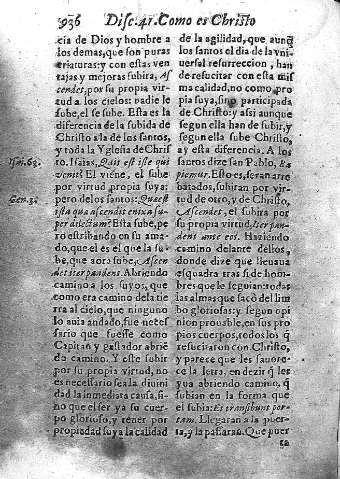 936 Disc. 41. Como es Christo
cia de Dios y hombre a
los demas, que son puras
criaturas: y con estas ven
tajas y mejoras subira, As
cendet, por su propia virtud
a los cielos: nadie le
sube, el se sube. Esta es la
diferencia de la subida de
Christo a la de los santos,
y toda la Yglesia de Chris
to. Isaias, Quis est iste qui
venit? El viene, el sube
por virtud propia suya:
pero de los santos: Quæ est
ista quæ ascendit enixa su-
per dilectum? Esta sube, pe
ro estribando en su ama-
do, que el es el que la su-
be, que aora sube, Ascen
det iter pandens. Abriendo
camino a los suyos, que
como era camino de la tie
rra al cielo, que ninguno
lo auia andado, fue neces
sario que fuesse como
Capitan y gastador abrié
do camino. Y este subir
por su propia virtud, no
es necessario sea la diuini
dad la inmediata causa, si-
no que el ser ya su cuer-
po glorioso, y tener por
propiedad suya la calidad
Isai. 63.
de la agilidad, que aunq̃
los santos el dia de la vni-
uersal resurreccion, han
de resucitar con esta mis
ma calidad, no como pro
pia suya, sino participada
de Christo: y assi aunque
segun ella han de subir, y
segun ella sube Christo,
ay esta diferencia. A los
santos dize san Pablo, Ra
piemur. Esto es, seran arre
batados, subiran por vir-
tud de otro, y de Christo,
Ascendet, el subira por
su propia virtud. Iter pan-
dens ante eos. Haziendo
camino delante dellos,
donde dize que lleuaua
esquadra tras si de hom-
bres que le seguian: todas
las almas que sacò del lim
bo gloriosas: y segun opi
nion prouable, en sus pro
pios cuerpos, todos los q̃
resucitaron con Christo,
y parece que les fauore-
ce la letra, en dezir q̃ les
yua abriendo camino, q̃
subian en la forma que
el subia: Et transibunt por-
tam. Llegaran a la puer-
ta, y la passaran. Que puer